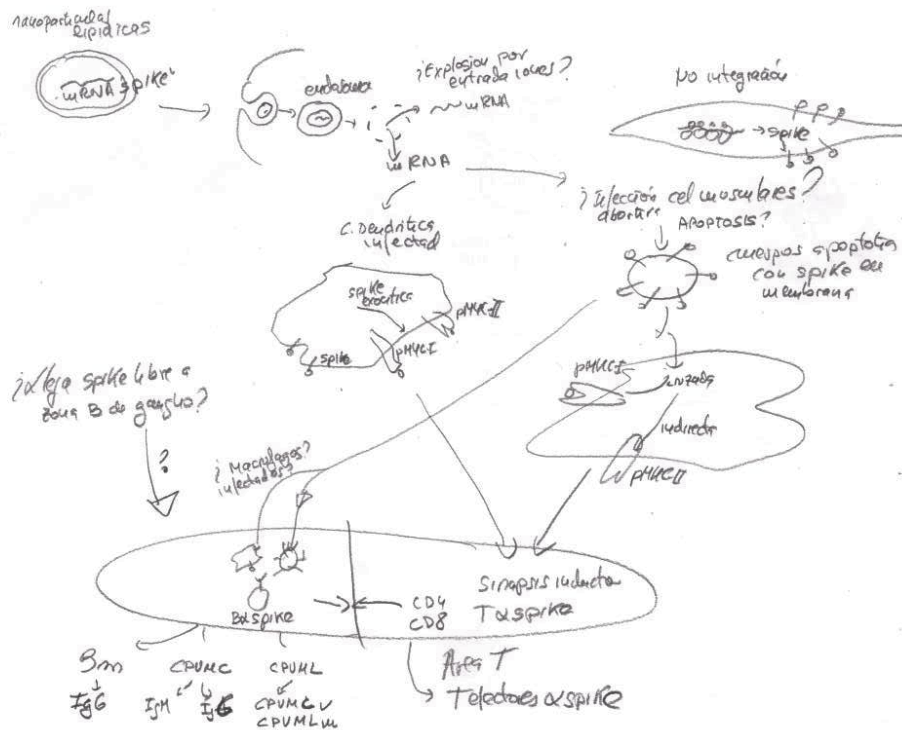 nanopartículas
lipídicas
mRNA spike
endosoma
¿Explosion por
entrada iones?
mRNA
mRNA
No integración
spike
¿Infección cel musculares?
abortiva
APOPTOSIS?
cuerpos apoptoticos
con spike en
membrana
C. Dendrítica
infectad
spike
exocítica
pMHCII
spike
pMHCI
pMHCI
cruzada
indirecta
pMHCII
¿Llega spike libre a
zona B de ganglio?
?
¿Macrófagos?
infectados?
Bαspike
CD4
CD8
Sinapsis inductora
Tαspike
Area T
Tefectores αspike
Bm
IgG
CPVMC
IgM
IgG
CPVML
CPVMLv
CPVMLm